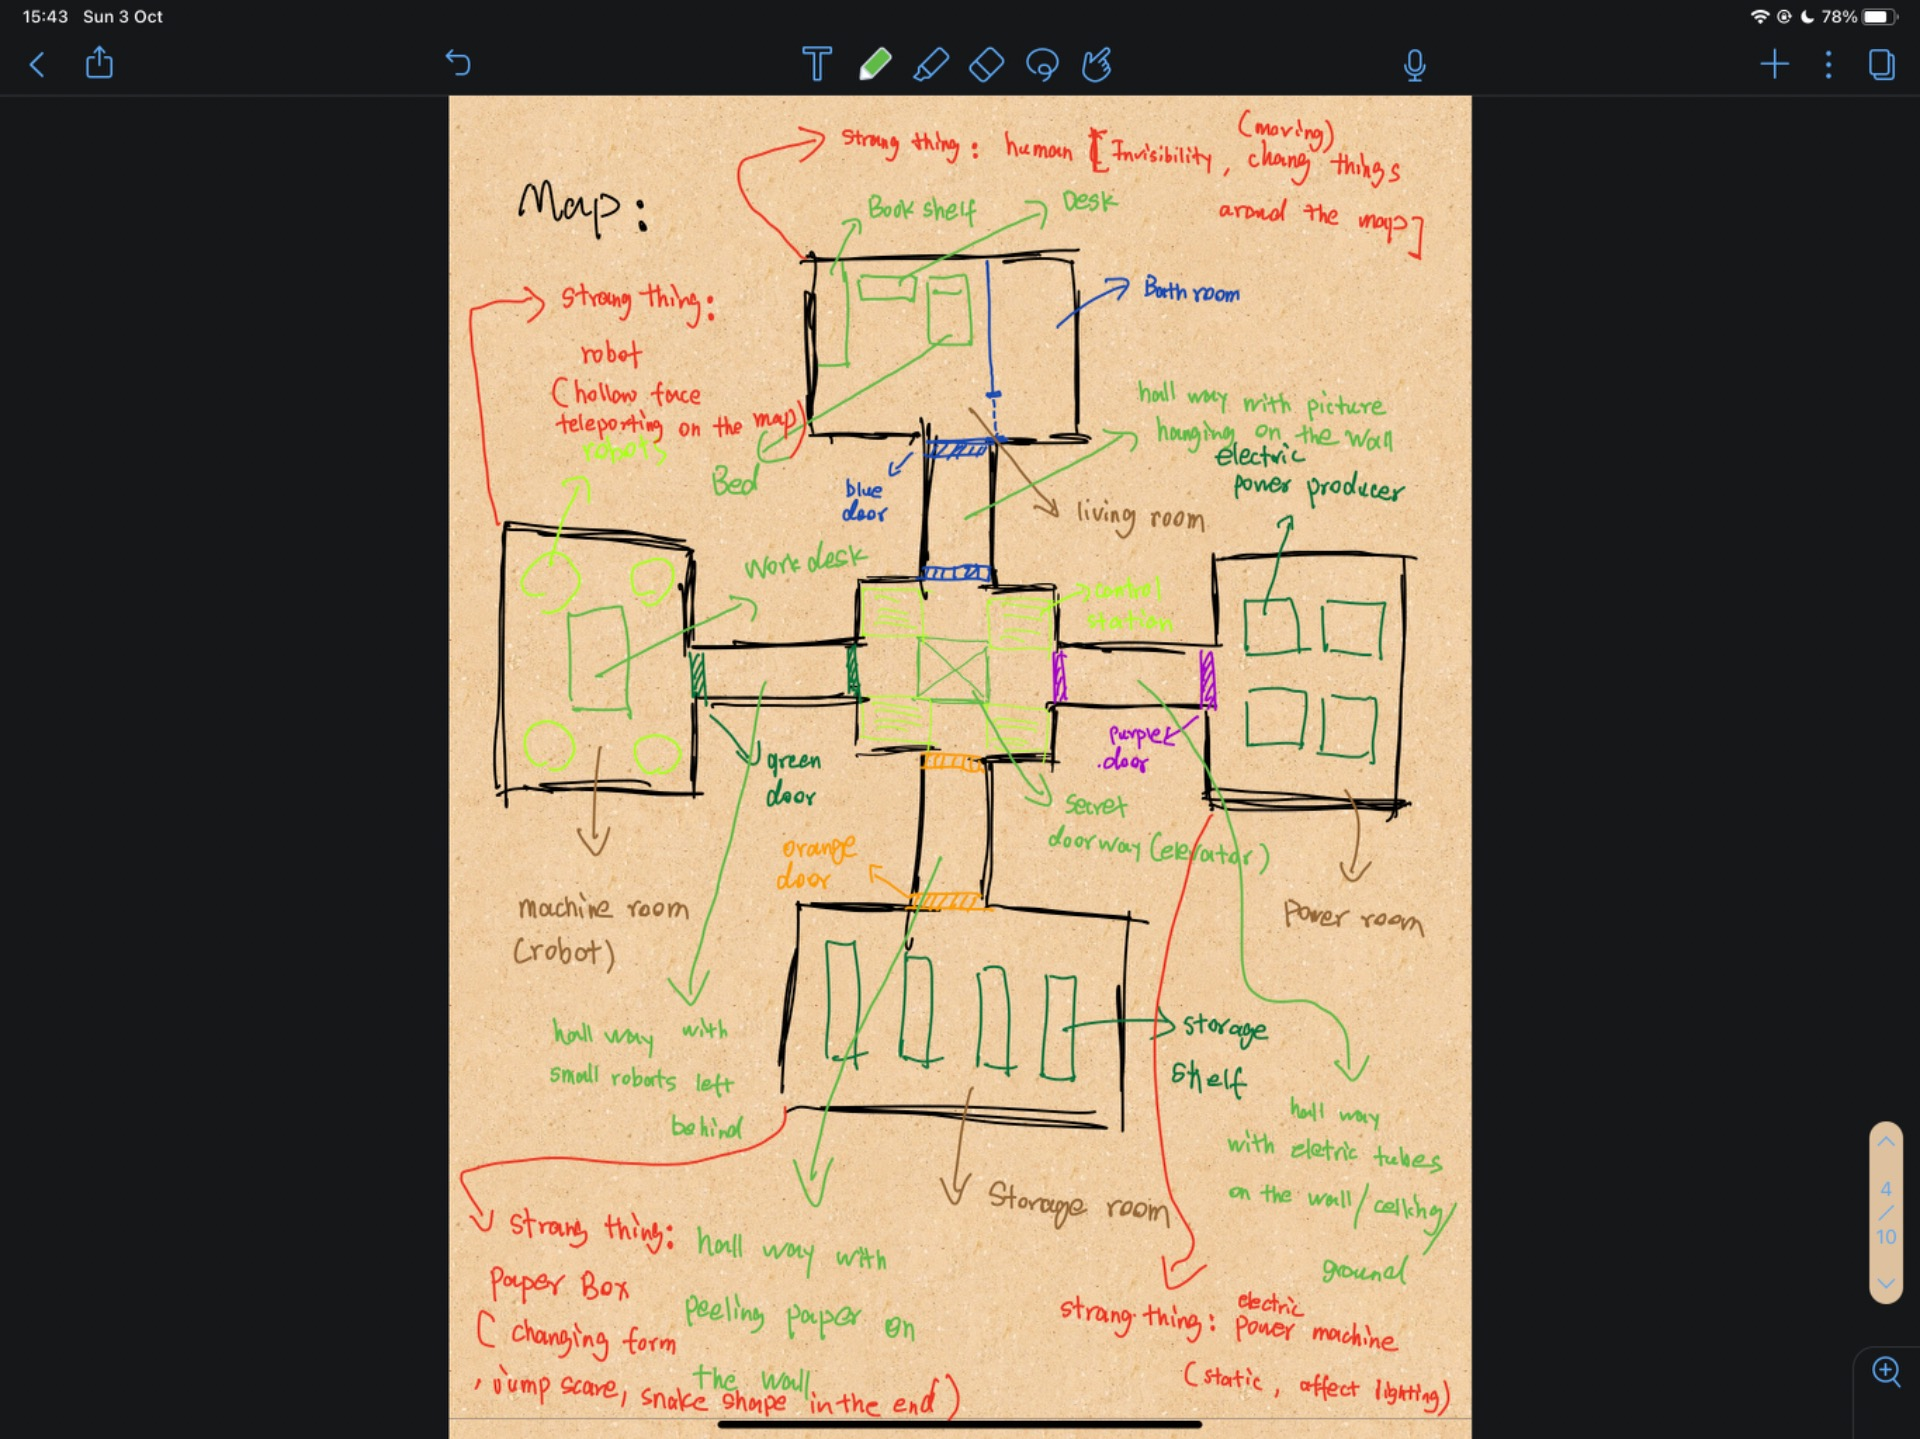 15:43 Sun 3 Oct
78%
T
Map:
strang thing: human [Invisibility, (moving) chang things
around the map]
Book shelf
Desk
Bathroom
strang thing:
robot
(hollow face
teleporting on the map)
robots
Bed
blue
door
hall way with picture
hanging on the wall
living room
electric
power producer
work desk
control
station
green
door
purple
door
secret
doorway (elevator)
orange
door
machine room
(robot)
Power room
hall way with
small robots left
behind
storage
shelf
hall way
with eletric tubes
on the wall/ceiling/
ground
Storage room
strang thing:
Paper Box
( changing form
, jump scare, snake shape in the end)
hall way with
Peeling paper on
the wall
strang thing: electric
power machine
(static, affect lighting)
4
/
10